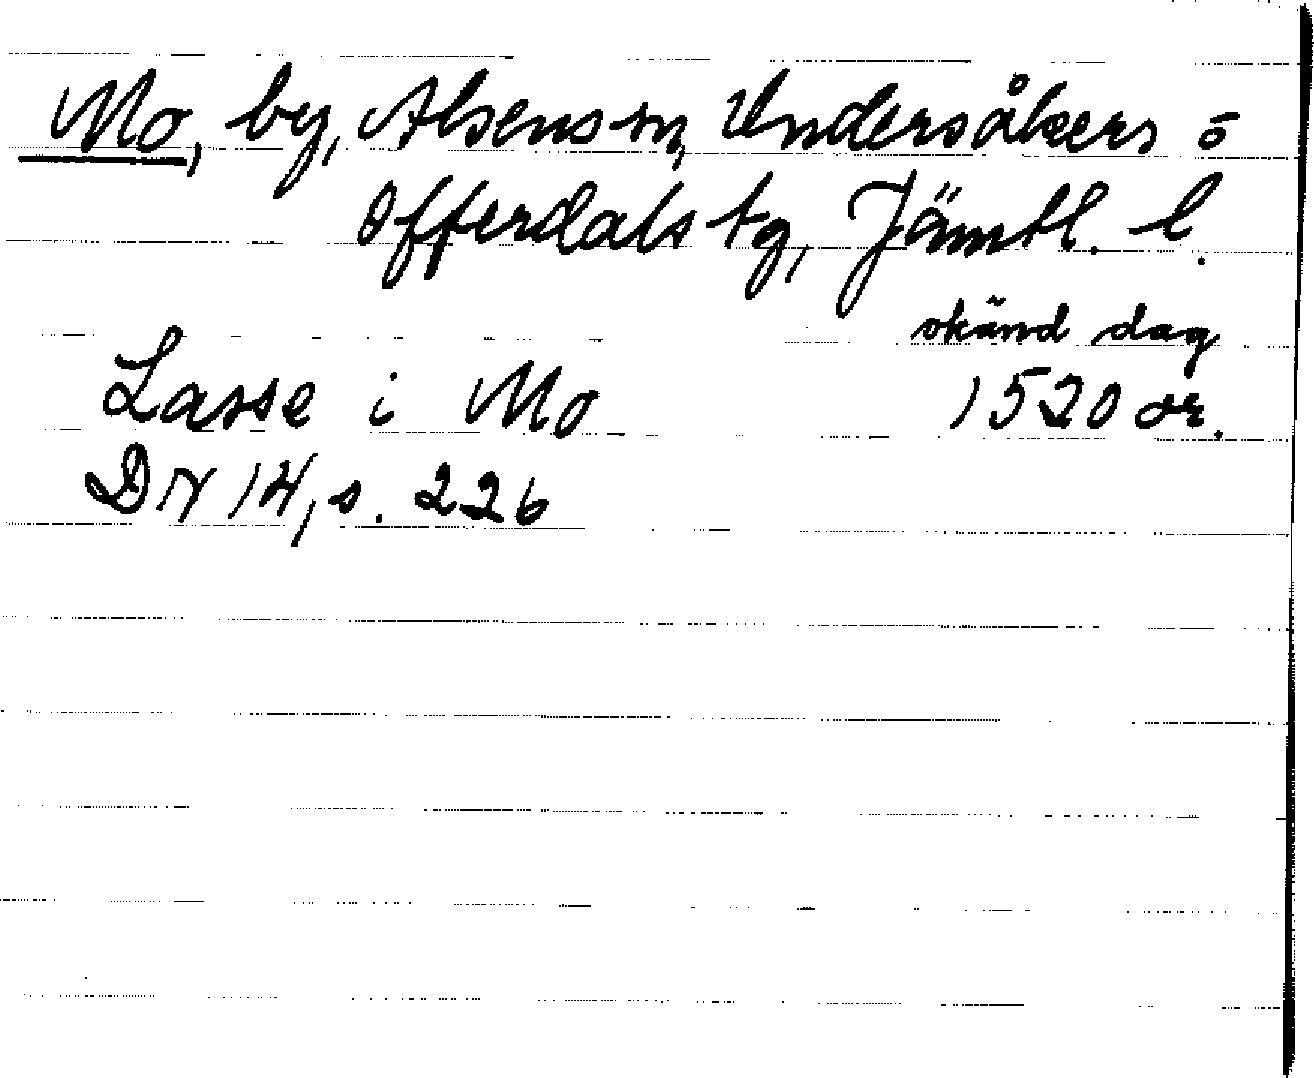 Mo, by, Alsens sn, Undersåkers o
Offerdals tg, Jämtl. l.
okänd dag
Lasse i Mo 1520 or.
DN 14, s. 226